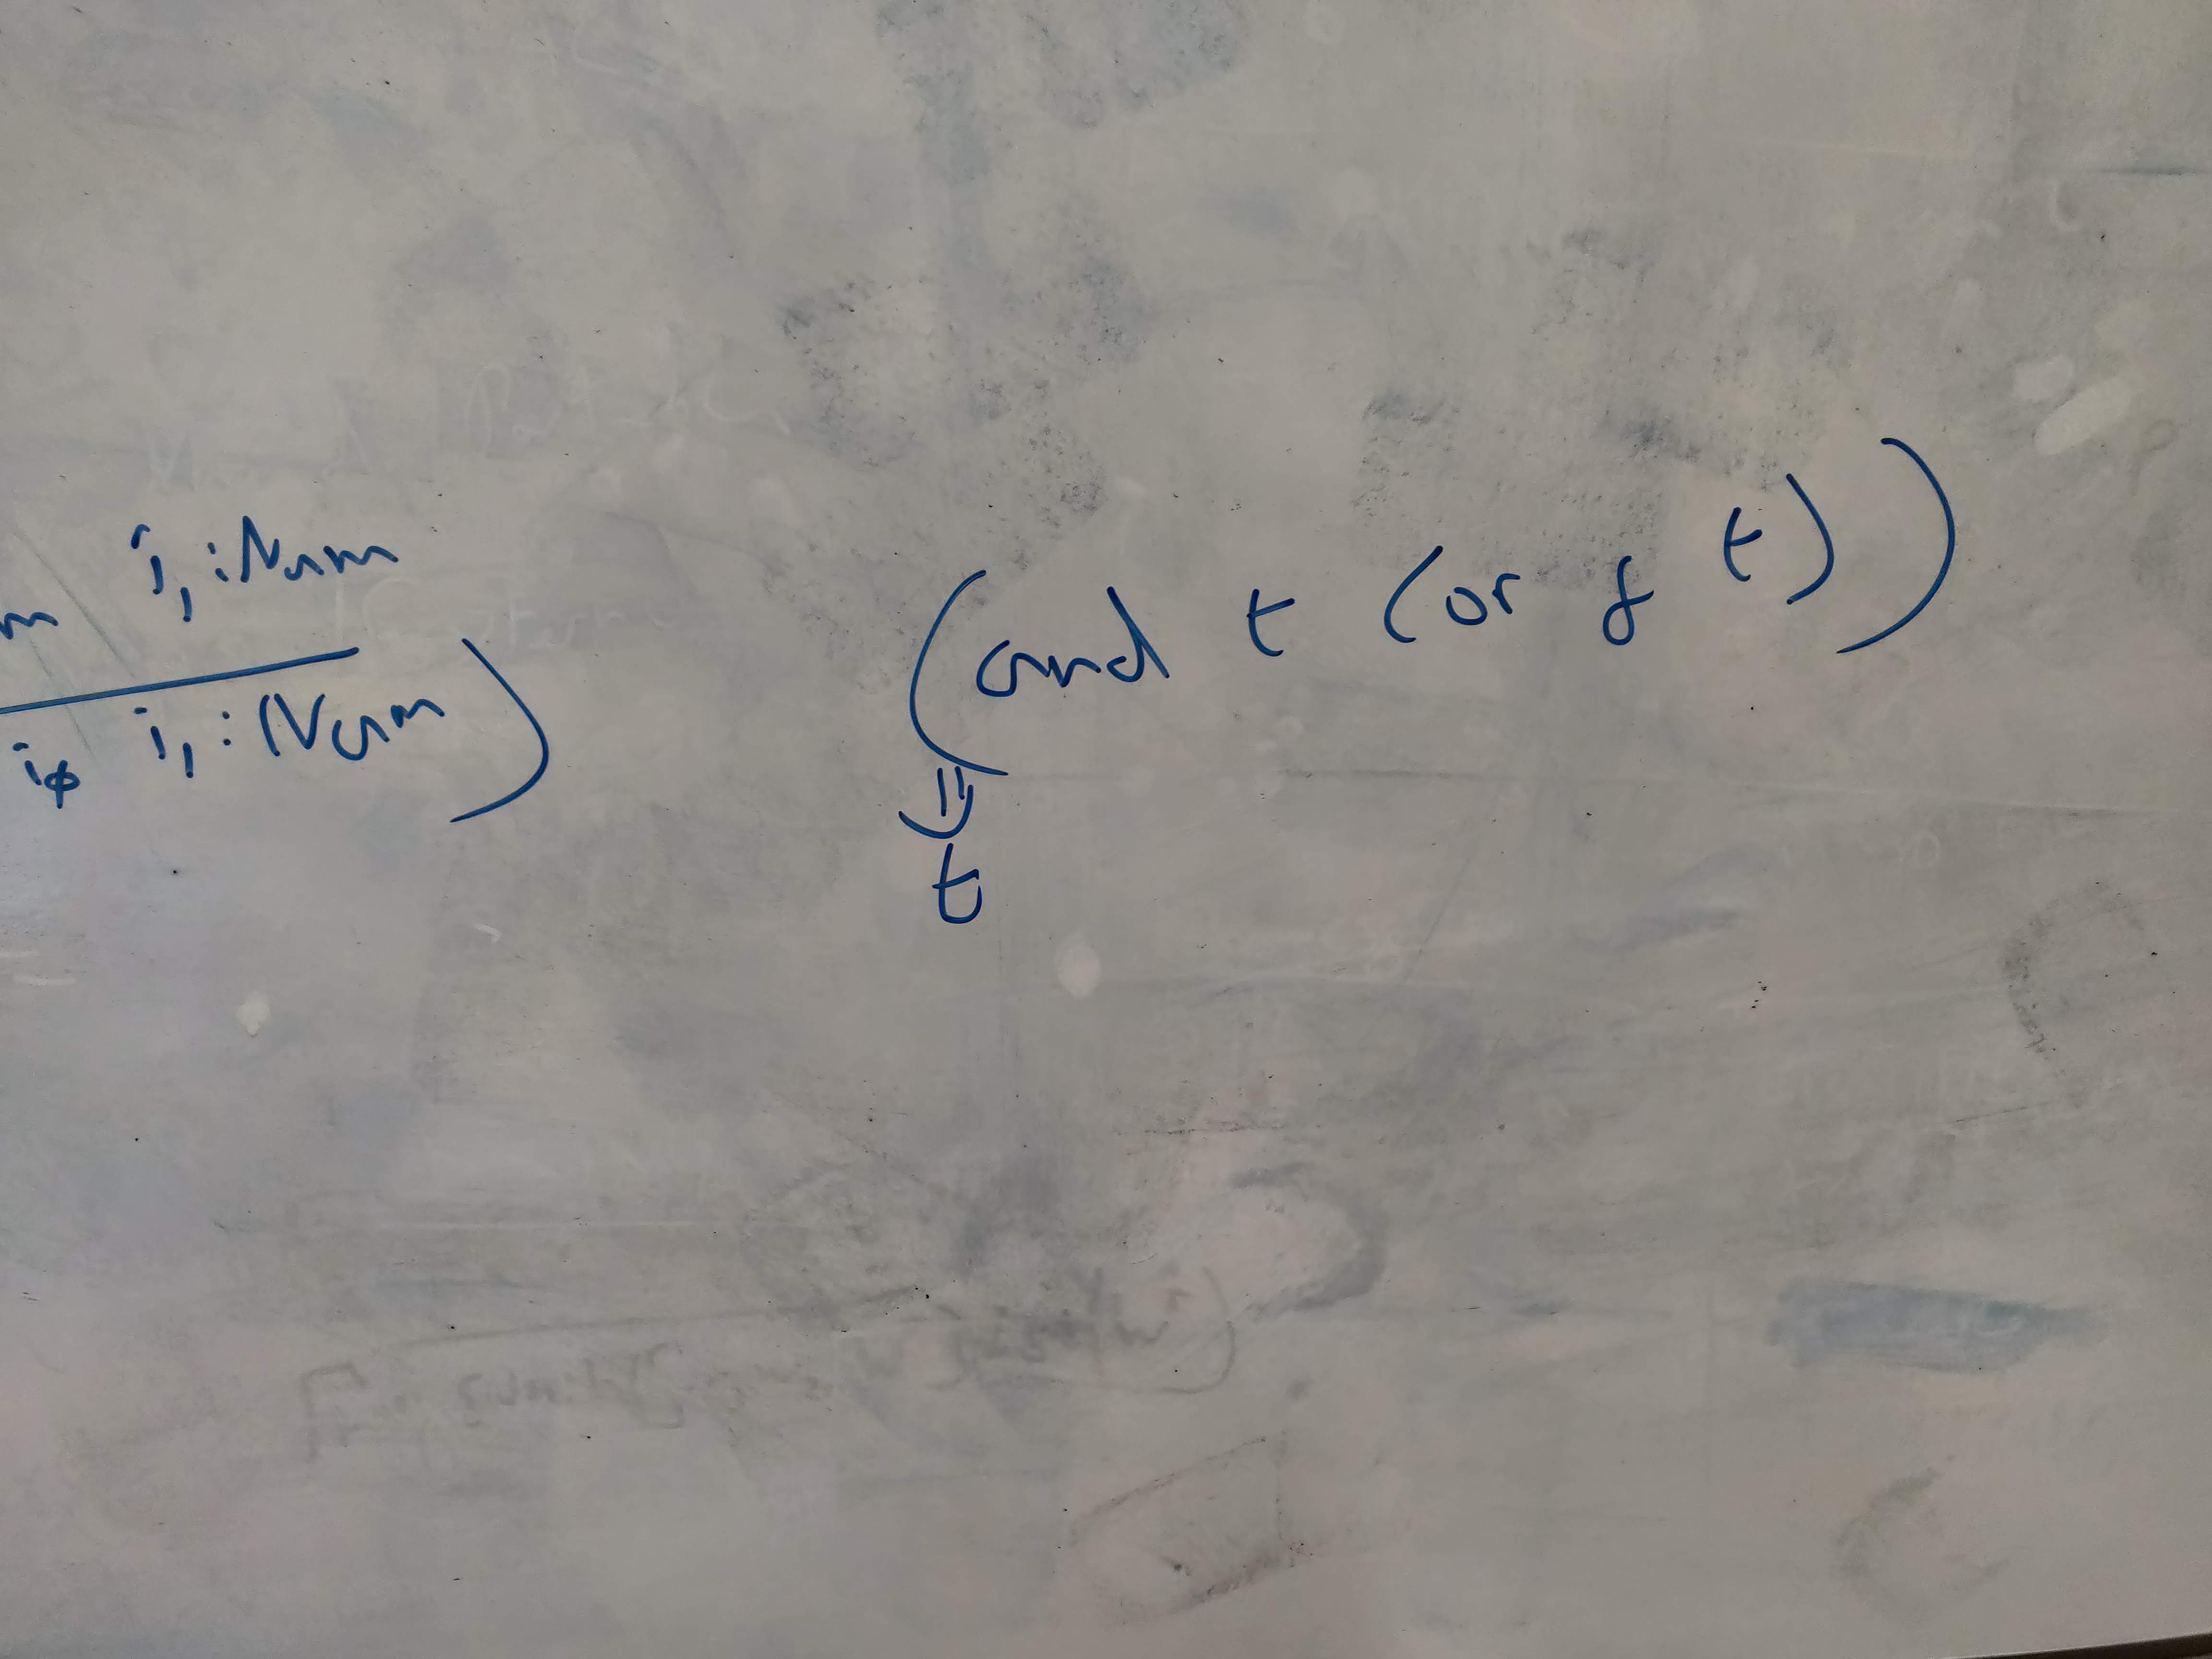 i₁ : Num
i∅ i₁ : Num)
(and t (or f t))
⇓
t